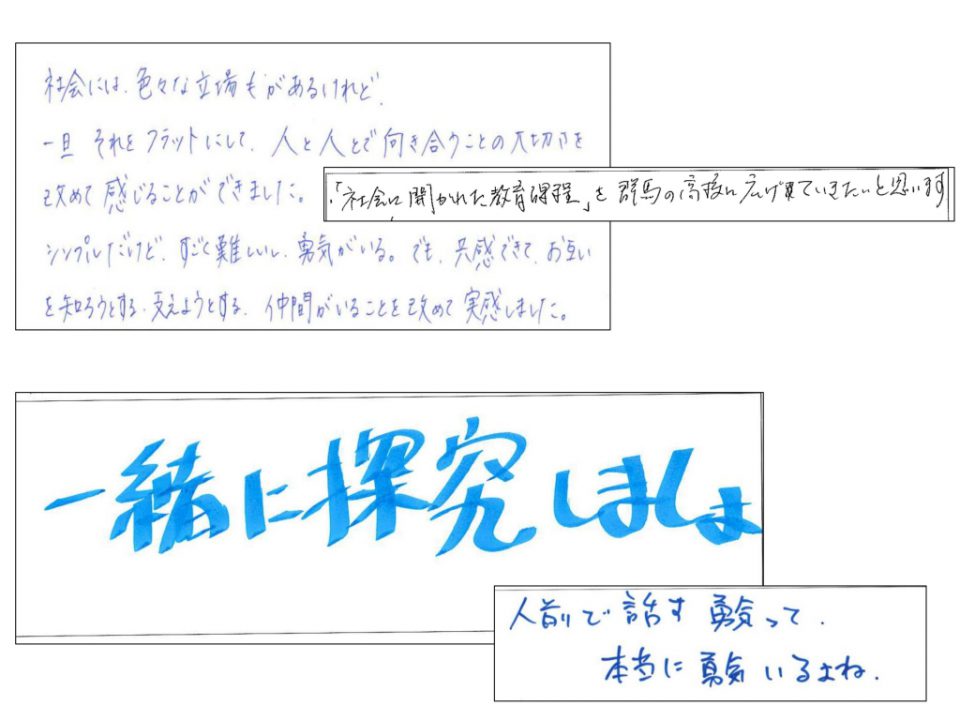 社会には、色々な立場もがあるけれど、
一旦 それを フラットにして、人と人とで向き合うことの大切さを
改めて感じることができました。
シンプルだけど、すごく難しいし、勇気がいる。でも、共感できて、お互い
を知ろうとする、支えようとする、仲間がいることを改めて実感しました。
・「社会に開かれた教育課程」を群馬の高校に広げていきたいと思います
一緒に探究しましょ
人前で話す勇気って、
本当に勇気いるよね。